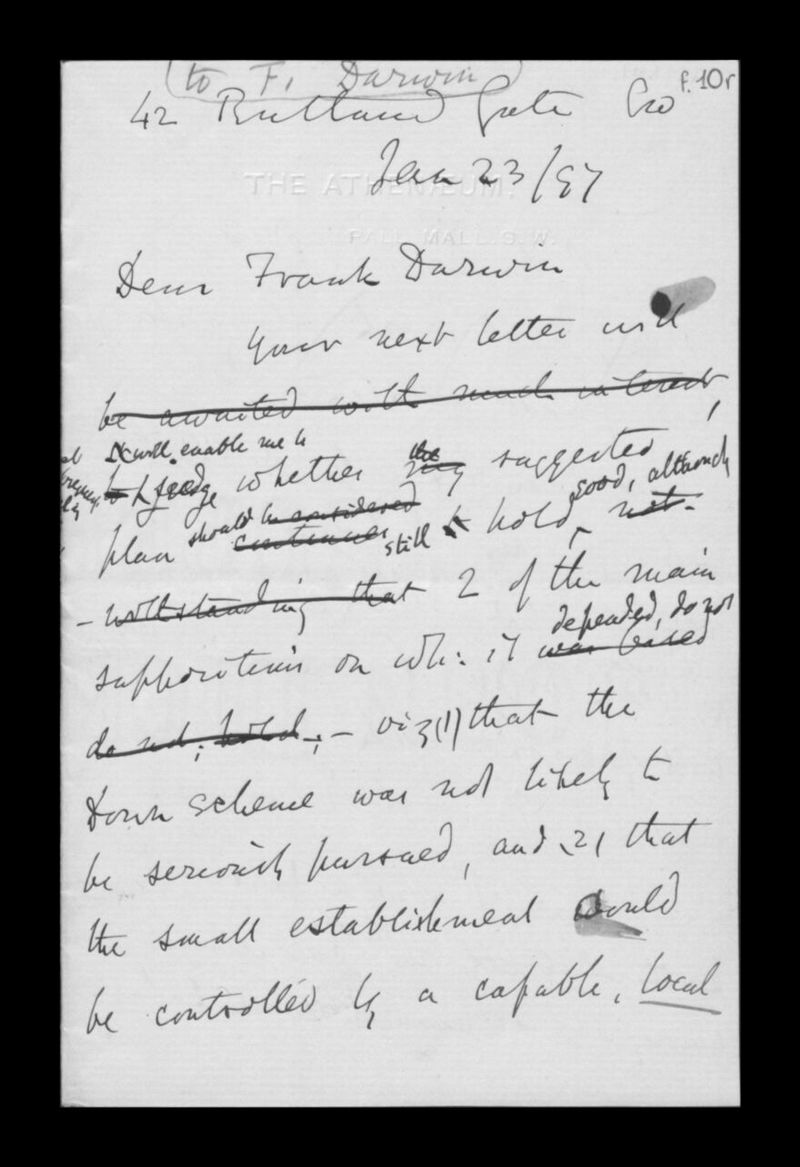 (to F. Darwin)
f. 10r
42 Rutland Gate
Jan 23/97
THE ATHENÆUM,
PALL MALL. S.W.
Dear Frank Darwin
Your next letter will
be awaited with much interest
will enable me to
judge whether the my suggested
good, although
plan should be considered continues still to hold, not-
- withstanding that 2 of the main
depended, do not
suppositions on wh: it was based
do not, hold, ; - viz (1) that the
Down scheme was not likely to
be seriously pursued, and (2) that
the small establishment would
be controlled by a capable, local